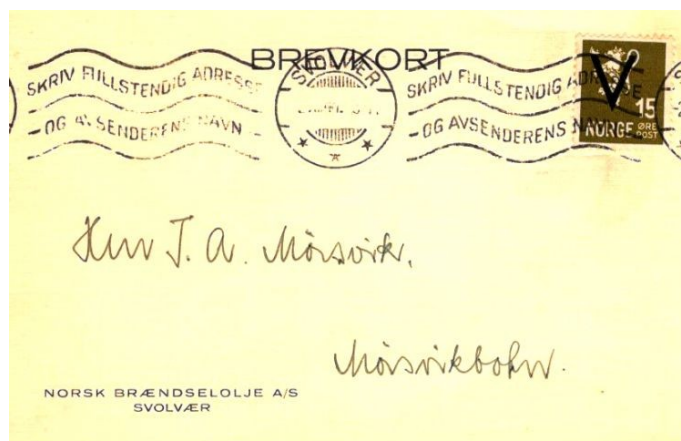 BREVKORT
SKRIV FULLSTENDIG ADRESSE
OG AVSENDERENS NAVN
SVOLVÆR
SKRIV FULLSTENDIG ADRESSE
OG AVSENDERENS NAVN
V
15
NORGE ØRE
POST
Herr J. A. Mørsvik,
Mørsvikbotn.
NORSK BRÆNDSELOLJE A/S
SVOLVÆR